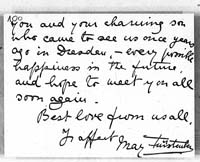 100
you and your charming son
who came to see us once years
ago in Dresden, - every possible
happiness in the future,
and hope to meet you all
soon again.
Best love from us all.
Yr affect
May